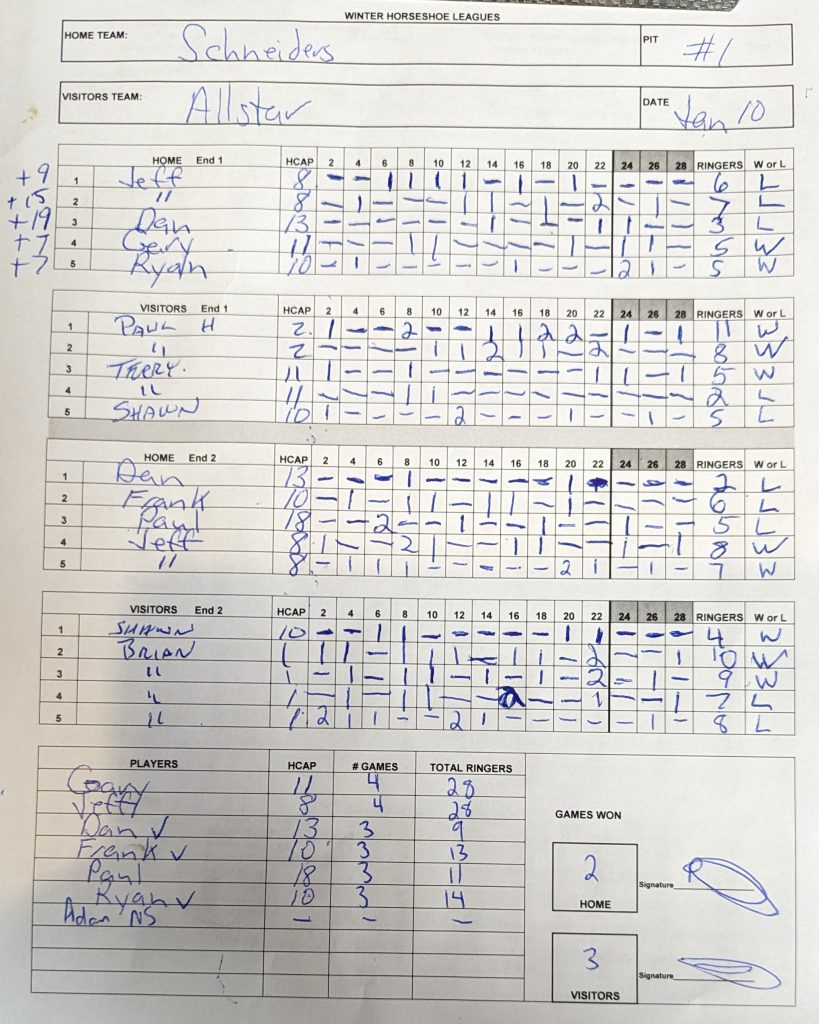 WINTER HORSESHOE LEAGUES
HOME TEAM: Schneiders PIT #1
VISITORS TEAM: Allstar DATE Jan 10
HOME End 1 HCAP 2 4 6 8 10 12 14 16 18 20 22 24 26 28 RINGERS W or L
+9 1 Jeff 8 - - 1 1 1 1 - 1 - 1 - - - - 6 L
+15 2 " 8 - 1 - - - 1 1 - 1 - 2 - 1 - 7 L
+19 3 Dan 13 - - - - - - 1 - - - 1 1 - - 3 L
+7 4 Geary 11 - - - 1 1 - - - - 1 - 1 1 - 5 W
+7 5 Ryan 10 - 1 - - - - - 1 - - - 2 1 - 5 W
VISITORS End 1 HCAP 2 4 6 8 10 12 14 16 18 20 22 24 26 28 RINGERS W or L
1 PAUL H 2 1 - - 2 - - 1 1 2 2 - 1 - 1 11 W
2 " 2 - - - - 1 1 2 1 1 - 2 - - - 8 W
3 TRERY. 11 1 - - 1 - - - - - - 1 1 - 1 5 W
4 " 11 - - - 1 1 - - - - - - - - - 2 L
5 SHAWN 10 1 - - - - 2 - - - 1 - - 1 - 5 L
HOME End 2 HCAP 2 4 6 8 10 12 14 16 18 20 22 24 26 28 RINGERS W or L
1 Dan 13 - - - 1 - - - - - 1 - - - - 2 L
2 Frank 10 - 1 - 1 1 - 1 1 - 1 - - - - 6 L
3 Paul 18 - - 2 - - 1 - - 1 - - 1 - - 5 L
4 Jeff 8 1 - - 2 1 - - 1 1 - - 1 - 1 8 W
5 " 8 - 1 1 1 - - - - - 2 1 - 1 - 7 W
VISITORS End 2 HCAP 2 4 6 8 10 12 14 16 18 20 22 24 26 28 RINGERS W or L
1 SHAWN 10 - - 1 1 - - - - - 1 1 - - - 4 W
2 BRIAN 1 1 1 - 1 1 1 - 1 1 - 2 - - 1 10 W
3 " 1 - 1 - 1 1 - 1 - 1 - 2 - 1 - 9 W
4 " 1 - 1 - 1 1 - - 2 - - 1 - - 1 7 L
5 " 1 2 1 1 - - 2 1 - - - - - 1 - 8 L
PLAYERS HCAP # GAMES TOTAL RINGERS
Geary 11 4 28
Jeff 8 4 28
Dan ✓ 13 3 9
Frank ✓ 10 3 13
Paul 18 3 11
Ryan ✓ 10 3 14
Adam NS - - -
GAMES WON
2 HOME Signature
3 VISITORS Signature